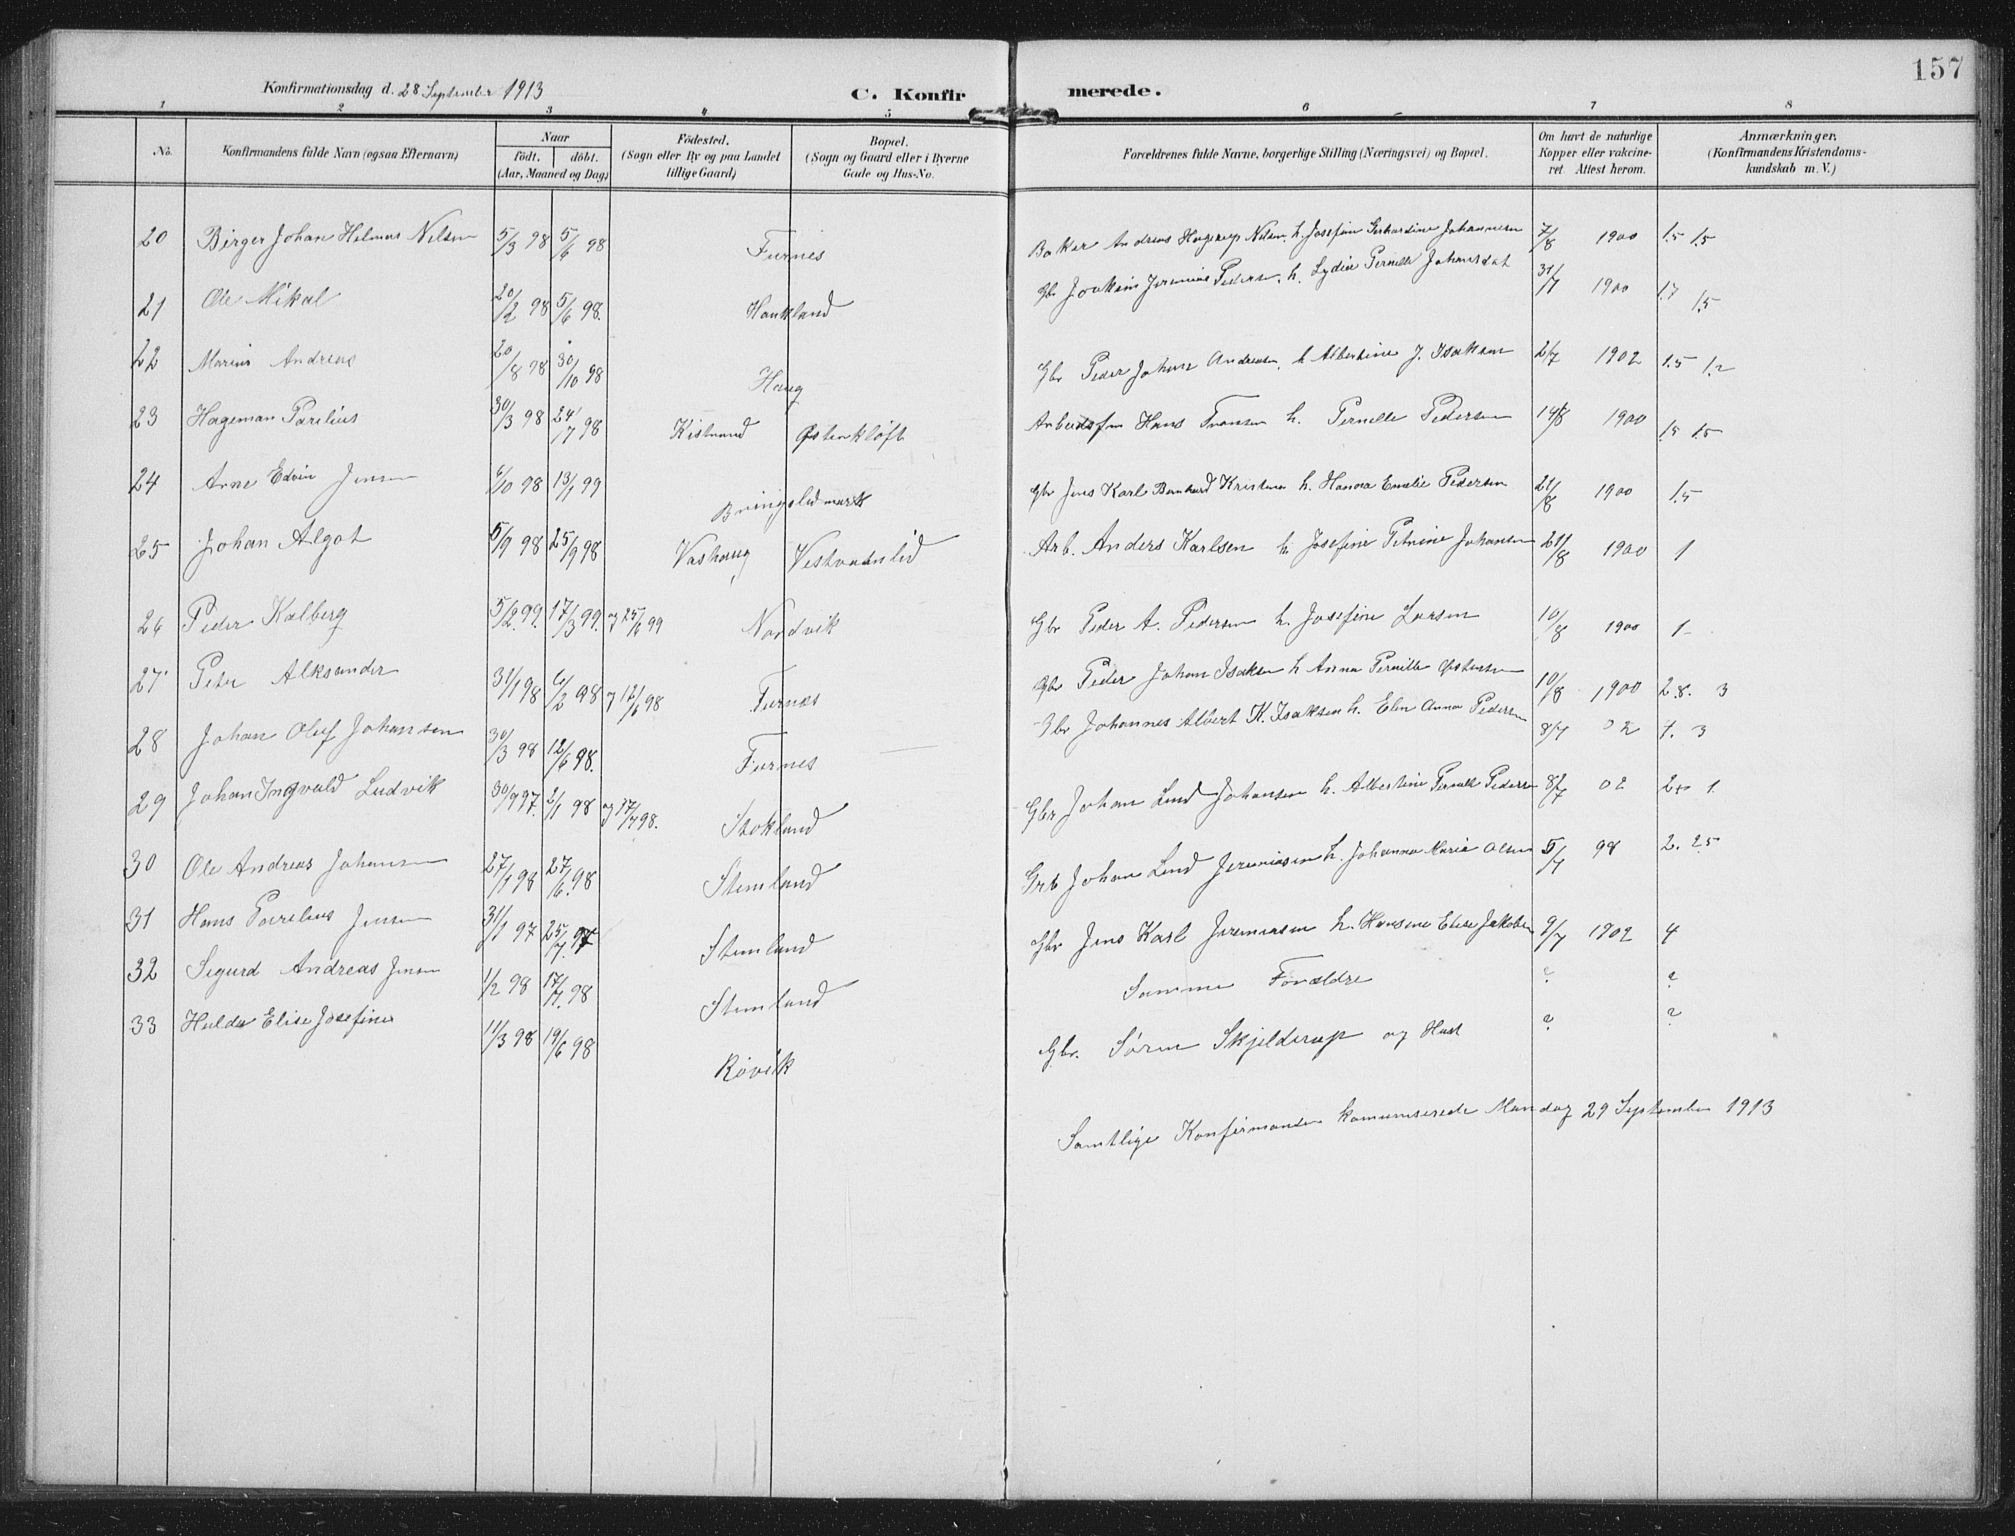 157
Konfirmationsdag d. 28 September 1913
C. Konfirmerede.
1 2 3 4 5 6 7 8
No. Konfirmandens fulde Navn (ogsaa Efternavn) Naar födt. döbt. (Aar, Maaned og Dag) Födested. (Sogn eller By og paa Landet tillige Gaard) Bopæl. (Sogn og Gaard eller i Byerne Gade og Hus-No. Forældrenes fulde Navne, borgerlige Stilling (Næringsvei) og Bopæl. Om havt de naturlige Kopper eller vakcineret. Attest herom. Anmærkninger. (Konfirmandens Kristendomskundskab m. V.)
20 Birger Johan Hilmar Nilsen 5/3 98 5/6 98 Furnes Baker Andreas Hagerup Nilsen, h. Josefine Gerhardine Johannesen 7/8 1900 1.5 1.5
21 Ole Mikal 20/2 98 5/6 98. Haukland Gbr Joakim Jeremias Pedersen, h. Lydia Pernille Johansdat 31/7 1900 1.7 1.5
22 Marius Andreas 20/8 98 30/10 98 Haug Gbr Peder Johan Andreasen, h Albertine J. Isaksen 2/7 1902 1.5 1.2
23 Hageman Parelius 30/3 98 24/7 98 Kistrand Østenkløft Arbeidsfm Hans Fransen h. Pernelle Pedersen 14/8 1900 1.5 1.5
24 Arne Edvin Jensen 6/10 98 13/1 99 Bringslidmark Gbr Jens Karl Bernhard Kristensen h. Hanna Emelie Pedersen 21/8 1900 1.5
25 Johan Algot 5/9 98 25/9 98 Vashaug Vestvatnlid Arb. Anders Karlsen h. Josefine Petrine Johansen 21/8 1900 1
26 Peder Kalberg 5/2 99. 17/3 99. J 25/6 99 Nordvik Gbr Peder A. Pedersen h. Josefine Larsen 10/8 1900 1
27 Peter Alksander 31/1 98 6/2 98 J 12/6 98 Furnes Gbr Peder Johan Isaksen h Anna Pernille Østensen 10/8 1900 2.8. 3
28 Johan Oluf Johansen 30/3 98 12/6 98. Furnes Gbr Johannes Albert K. Isaksen h. Elen Anna Pedersen 8/7 02 1. 3
29 Johan Ingvald Ludvik 30/9 97. 2/1 98 J 17/7 98. Stokland Gbr Johan Lind Johansen h. Albertine Pernille Pedersen 8/7 02 2 1
30 Ole Andreas Johansen 27/1 98 27/6. 98 Stemland Grb Johan Lind Jeremiasen h. Johanna Maria Olsen 5/7 98 2. 2.5
31 Hans Parelius Jensen 31/1 97 25/7. 97 Stemland Gbr Jens Karl Jeremiasen h. Hansine Elise Jakobsen 9/7 1902 4
32 Sigurd Andreas Jensen 1/2 98 17/7. 98 Stemland Samme Forældre ? ?
33 Hulda Elise Josefine 11/3 98 19/6 98 Røvik Gbr. Søren Skjelderup og Hust ? ?
Samtlige Konfirmander kommuniserede Mandag 29 September 1913